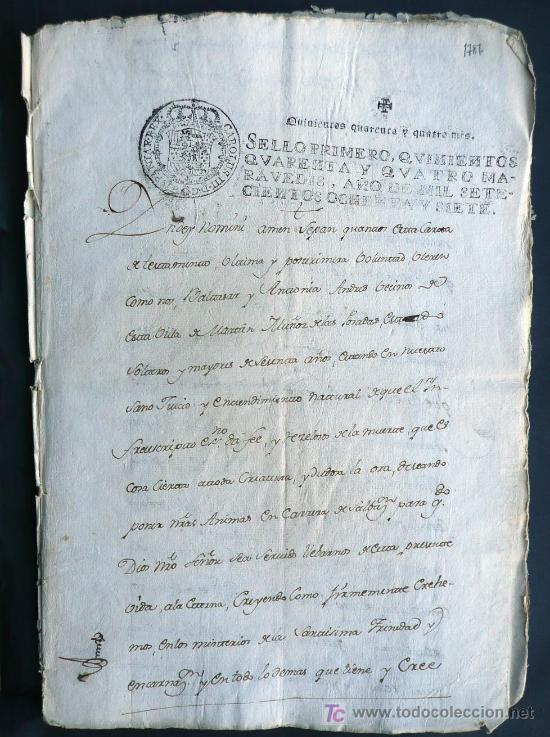 1787
Quinientos quarenta y quatro mrs.
SELLO PRIMERO, QVINIENTOS
QVARENTA Y QVATRO MA-
RAVEDIS, AÑO DE MIL SETE-
CIENTOS OCHENTA Y SIETE.
CAROLUS III D G
Yn Dey Nomini amen sepan quantos esta Carta
de testamento, Ultima y postrimera Voluntad vieren
Como nos, Baltasar y Antonia Andres vecinos de
esta Villa de Martin Muñoz de las Posadas, estado
solteros y mayores de sesenta años, estando en nuestro
sano Juicio y entendimiento natural de que el In-
frascripto esno. da fee, y temerosos de la muerte, que es
Cosa Cierta a toda Criatura, y dudosa la ora, deseando
poner nras Animas en Carrera de salbazn para qdo
Dios nro Señor sea servido llebarnos de esta presente
vida, a la eterna, Creyendo Como firmemente Crehe-
mos, en los misterios de la santisima Trinidad y
encarnazn y en todo lo demas que tiene y Cree
TC www.todocoleccion.net